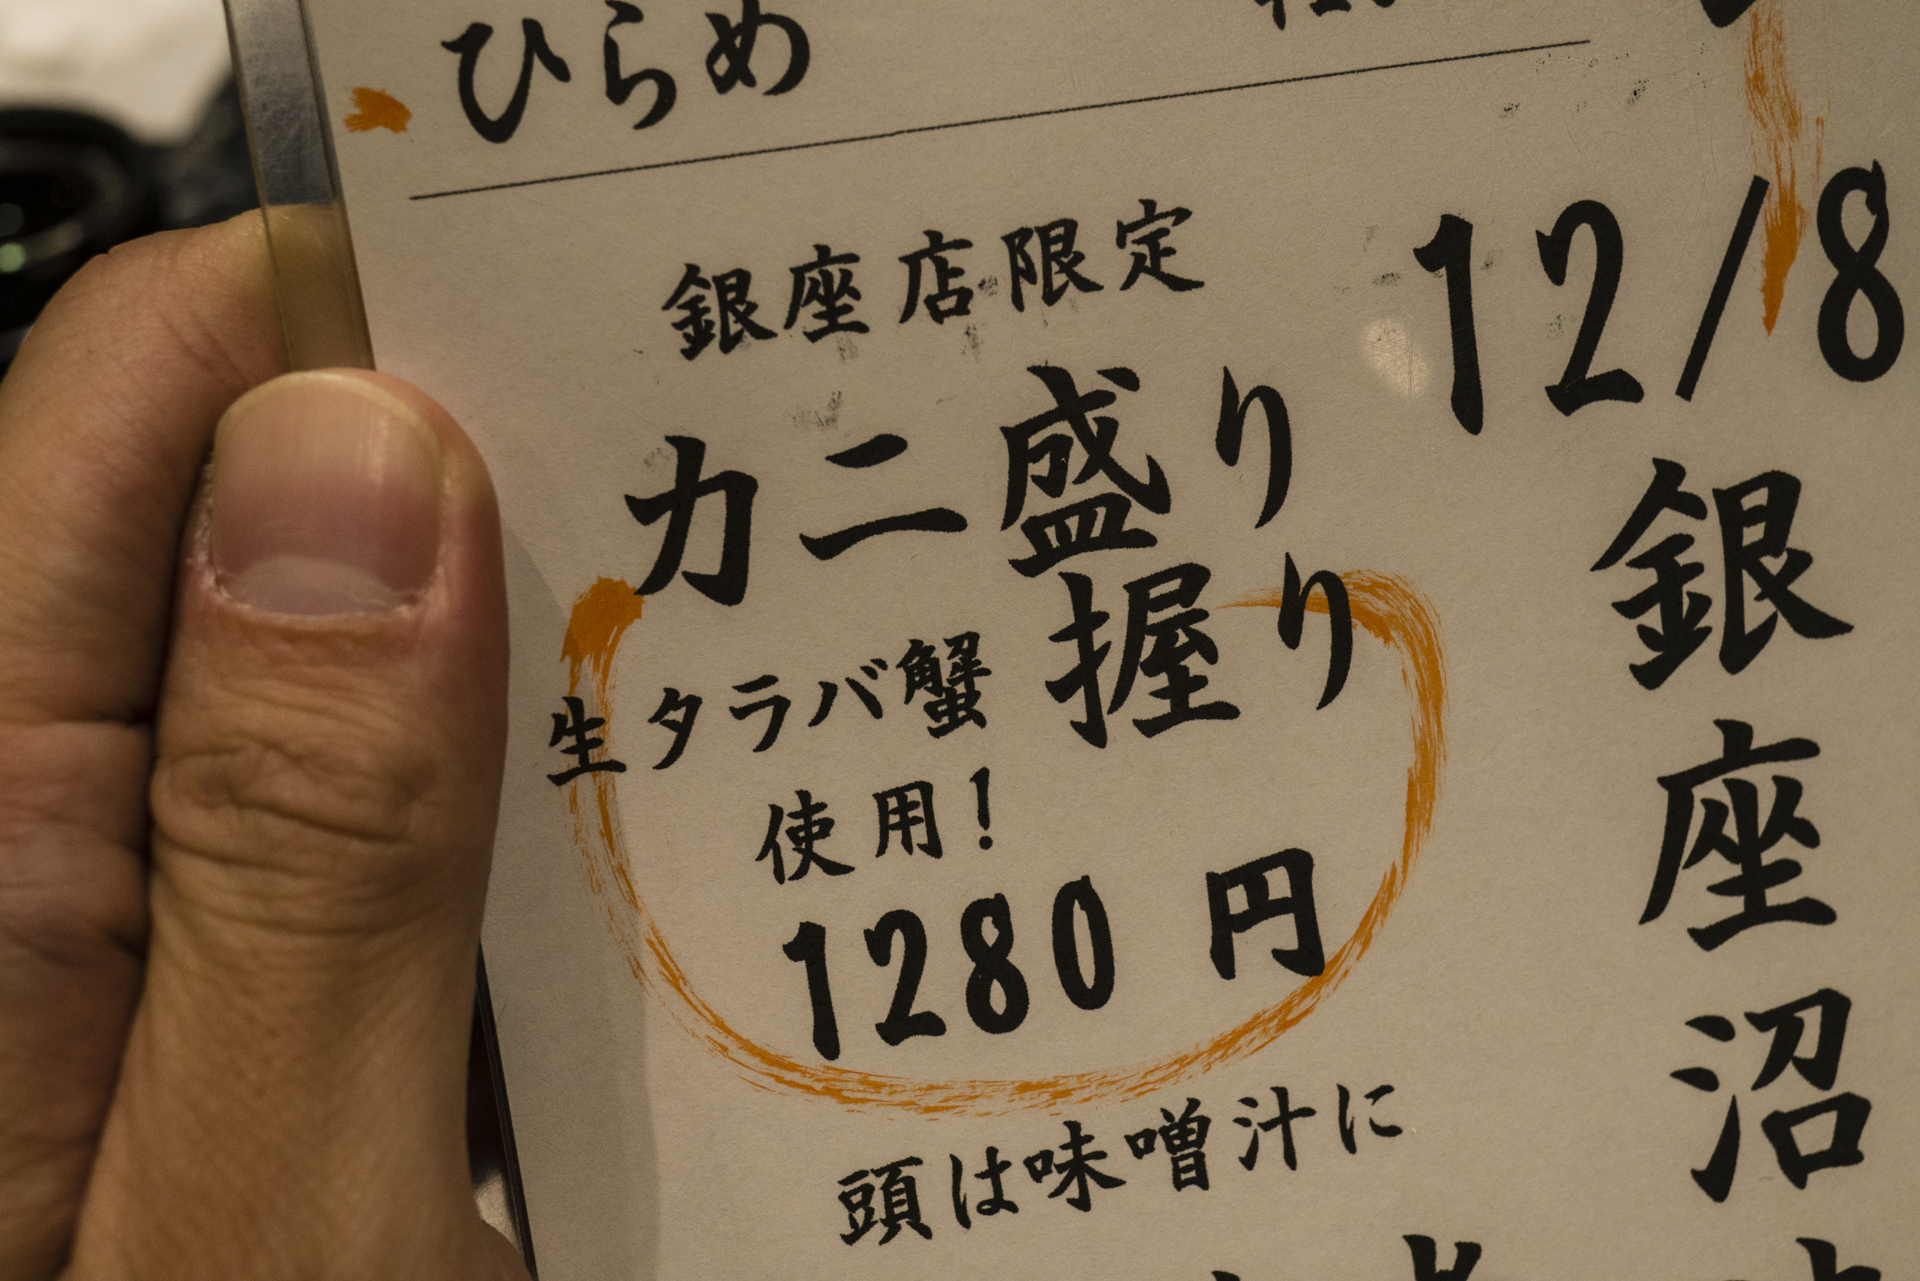 ひらめ
銀座店限定
カニ盛り
握り
生タラバ蟹
使用！
1280 円
頭は味噌汁に
12/8
銀座沼